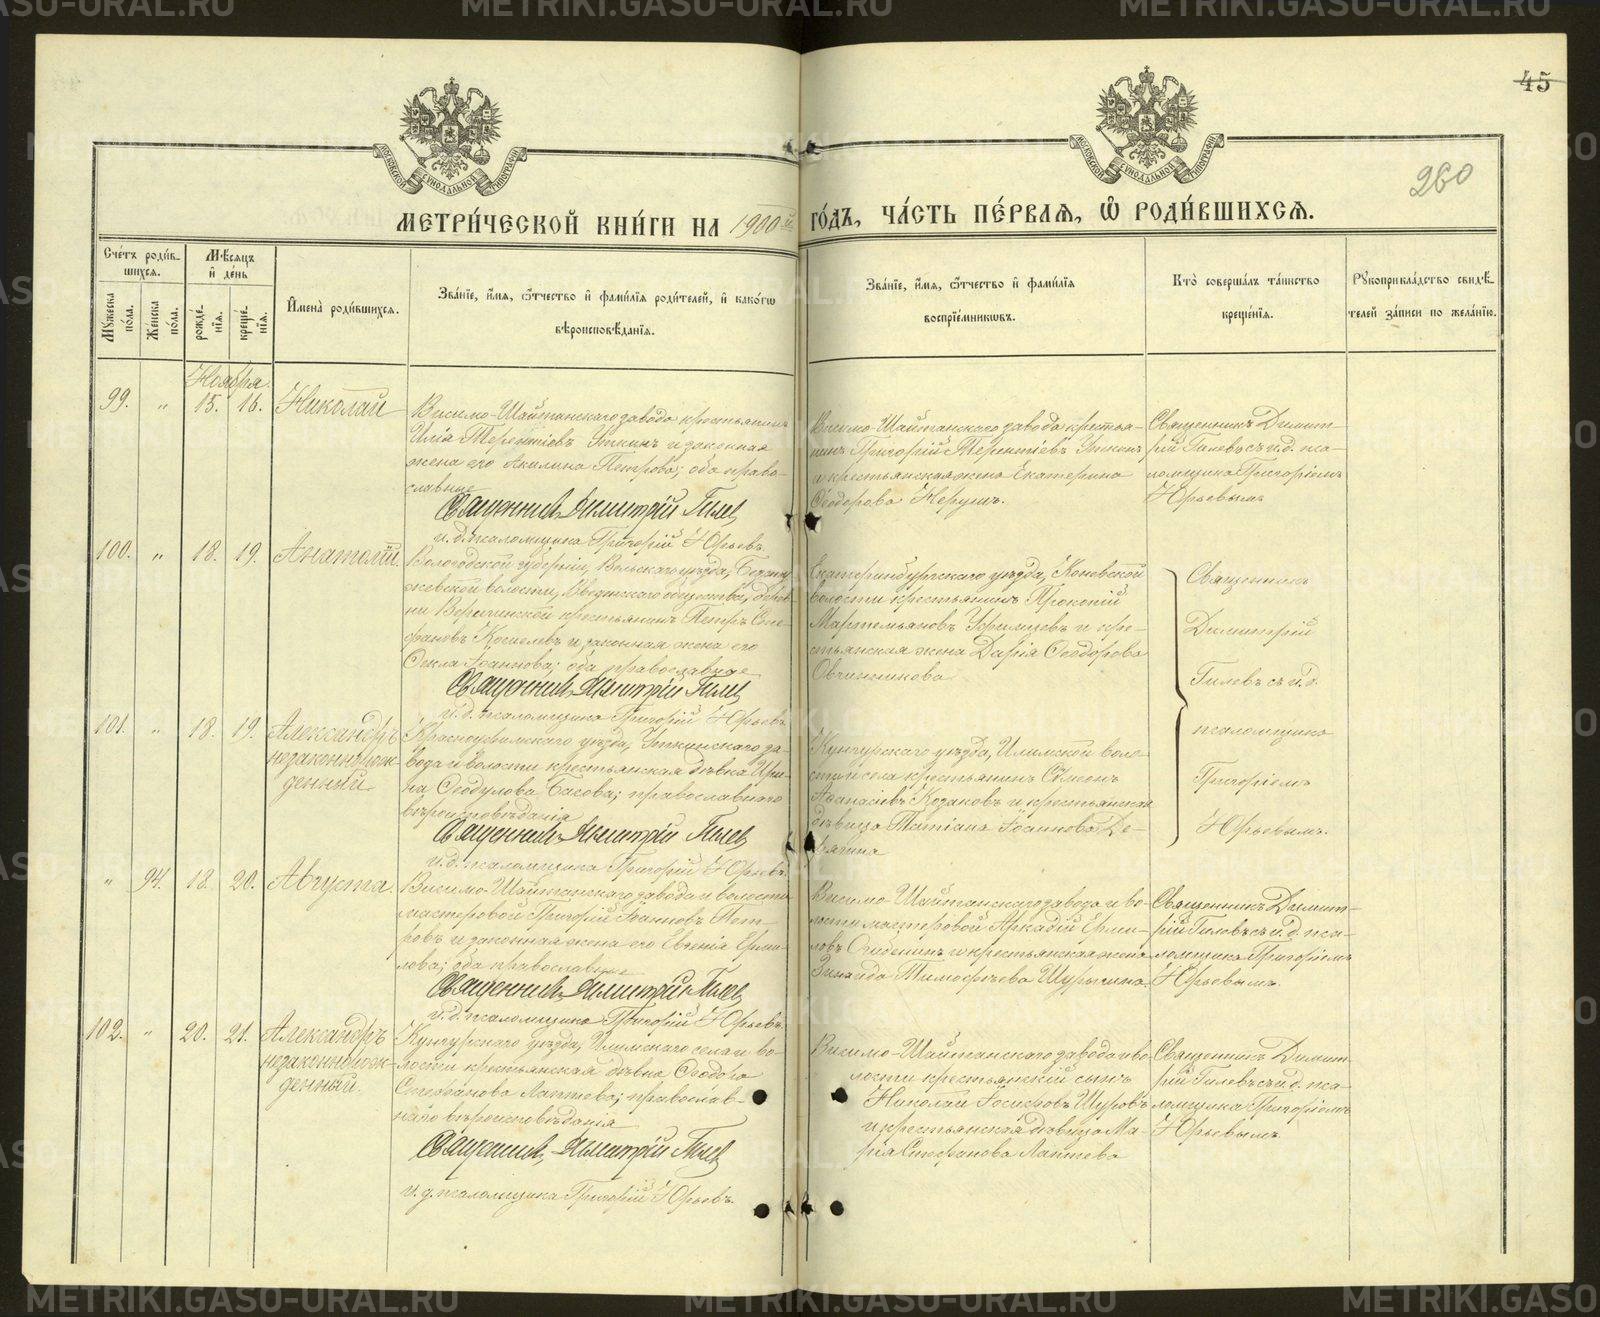 METRIKI.GASO-URAL.RU
45
260
МОСКОВСКОЙ СѴНОДАЛЬНОЙ ТИПОГРАФІИ
МОСКОВСКОЙ СѴНОДАЛЬНОЙ ТИПОГРАФІИ
МЕТРИ́ЧЕСКОЙ КНИ́ГИ НА 1900й ГО́ДЪ, ЧА́СТЬ ПЕ́РВАЯ, Ѡ РОДИ́ВШИХСЯ.
Сче́тъ роди́в-
шихся.
Му́жеска по́ла.
Же́нска по́ла.
Мѣ́сяцъ
и҆ де́нь
рожде́-
нїя.
креще́-
нїя.
И҆мена̀ роди́вшихся.
Зва́нїе, и҆́мя, ѻ҆́тчество и҆ фами́лїя роди́телей, и҆ како́гѡ
вѣроисповѣ́данїя.
Зва́нїе, и҆́мя, ѻ҆́тчество и҆ фами́лїя
воспрїе́мникѡвъ.
Кто̀ соверша́лъ та́инство
креще́нїя.
Рꙋкоприкла́дство свидѣ́-
телей за́писи по жела́нїю.
Ноября
99. „ 15. 16. Николай
Висимо-Шайтанскаго завода крестьянинъ
Илія Терентіевъ Уткинъ и законная
жена его Акилина Петрова; оба право-
славные
Священникъ Димитрій Гилев
и. д. псаломщика Григорій Юрьевъ.
Висимо-Шайтанскаго завода крестья-
нинъ Григорій Терентіевъ Уткинъ
и крестьянская жена Екатерина
Ѳеодорова Неруш.
Священникъ Димит-
рій Гилевъ съ и. д. пса-
ломщика Григоріемъ
Юрьевымъ
100. „ 18. 19. Анатолій.
Вологодской губерніи, Вельскаго уѣзда,
волости, общества, дерев-
ни крестьянинъ Петръ Сте-
фановъ и законная жена его
Ѳекла Іоаннова; оба православные
Священникъ Димитрій Гилев
и. д. псаломщика Григорій Юрьевъ
Екатеринбургскаго уѣзда, Коневской
волости крестьянинъ Прокопій
Мартемьяновъ Уфимцевъ и кре-
стьянская жена Дарія Ѳеодорова
Овчинникова
Священникъ
Димитрій
Гилевъ съ и. д.
псаломщика
Григоріемъ
Юрьевымъ.
101. „ 18. 19. Александръ
незаконнорож-
денный.
Красноуфимскаго уѣзда, Уткинскаго за-
вода и волости крестьянская дѣвка Ири-
на Ѳеодулова Басова; православнаго
вѣроисповѣданія
Священникъ Димитрій Гилев
и. д. псаломщика Григорій Юрьевъ.
Кунгурскаго уѣзда, Илимской воло-
сти и села крестьянинъ Симеонъ
Аѳанасіевъ Козаковъ и крестьянская
дѣвица Татіана Іоаннова Де-
вягина
„ 94. 18. 20. Августа.
Висимо-Шайтанскаго завода и волости
мастеровой Григорій Іоанновъ Пет-
ровъ и законная жена его Евгенія Ерми-
лова; оба православные
Священникъ Димитрій Гилев
и. д. псаломщика Григорій Юрьевъ.
Висимо-Шайтанскаго завода и во-
лости мастеровой Аркадій Ерми-
ловъ и крестьянская жена
Зинаида Тимофѣева Шурыгина.
Священникъ Димит-
рій Гилевъ съ и. д. пса-
ломщика Григоріемъ
Юрьевымъ.
102. „ 20. 21. Александръ
незаконнорож-
денный.
Кунгурскаго уѣзда, Илимскаго села и во-
лости крестьянская дѣвка Ѳеодора
Стефанова Лаптева; православ-
наго вѣроисповѣданія
Священникъ Димитрій Гилев
и. д. псаломщика Григорій Юрьевъ.
Висимо-Шайтанскаго завода и во-
лости крестьянскій сынъ
Николай Іосифовъ Шуровъ
и крестьянская дѣвица Ма-
рія Стефанова Лаптева
Священникъ Димит-
рій Гилевъ съ и. д. пса-
ломщика Григоріемъ
Юрьевымъ.
METRIKI.GASO-URAL.RU